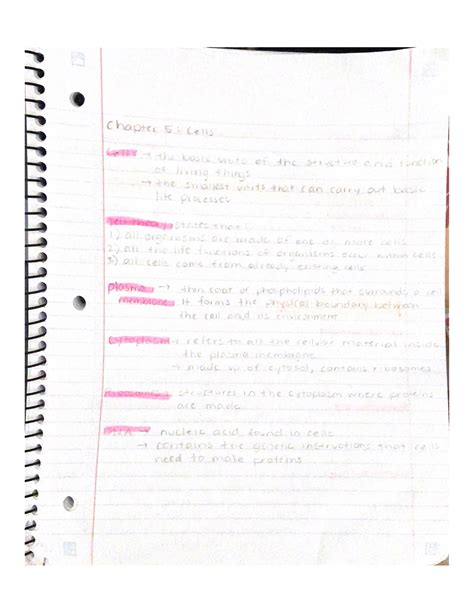 Chapter 5: Cells
Cell → the basic units of the structure and function
of living things
→ the smallest units that can carry out basic
life processes
cell theory states that:
1) all organisms are made of one or more cells
2) all the life functions of organisms occur within cells
3) all cells come from already existing cells
plasma → thin coat of phospholipids that surrounds a cell
membrane → It forms the physical boundary between
the cell and its environment
cytoplasm → refers to all the cellular material inside
the plasma membrane
→ made up of cytosol, contains ribosomes
ribosomes → structures in the cytoplasm where proteins
are made
DNA → nucleic acid found in cells
→ contains the genetic instructions that cells
need to make proteins